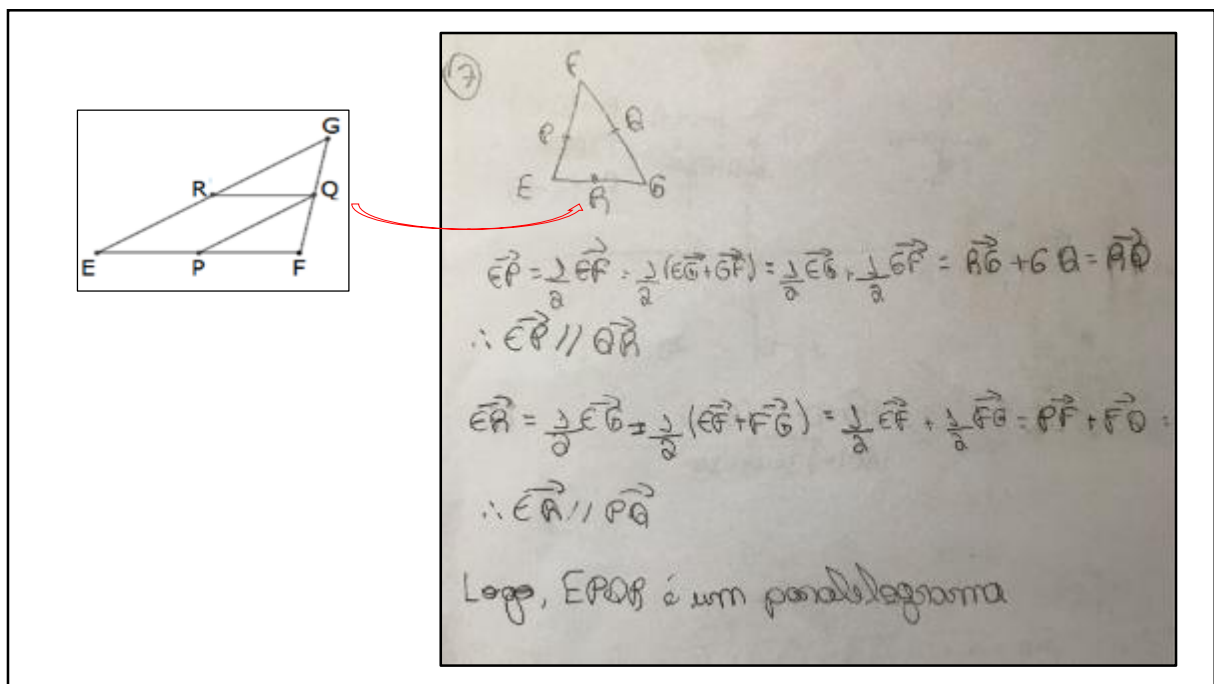 G
R
Q
E
P
F
17
F
P
Q
E
R
G
EP = 1/2 EF = 1/2 (EG + GF) = 1/2 EG + 1/2 GF = RG + GQ = RQ
∴ EP // QR
ER = 1/2 EG = 1/2 (EF + FG) = 1/2 EF + 1/2 FG = PF + FQ =
∴ ER // PQ
Logo, EPQR é um paralelograma